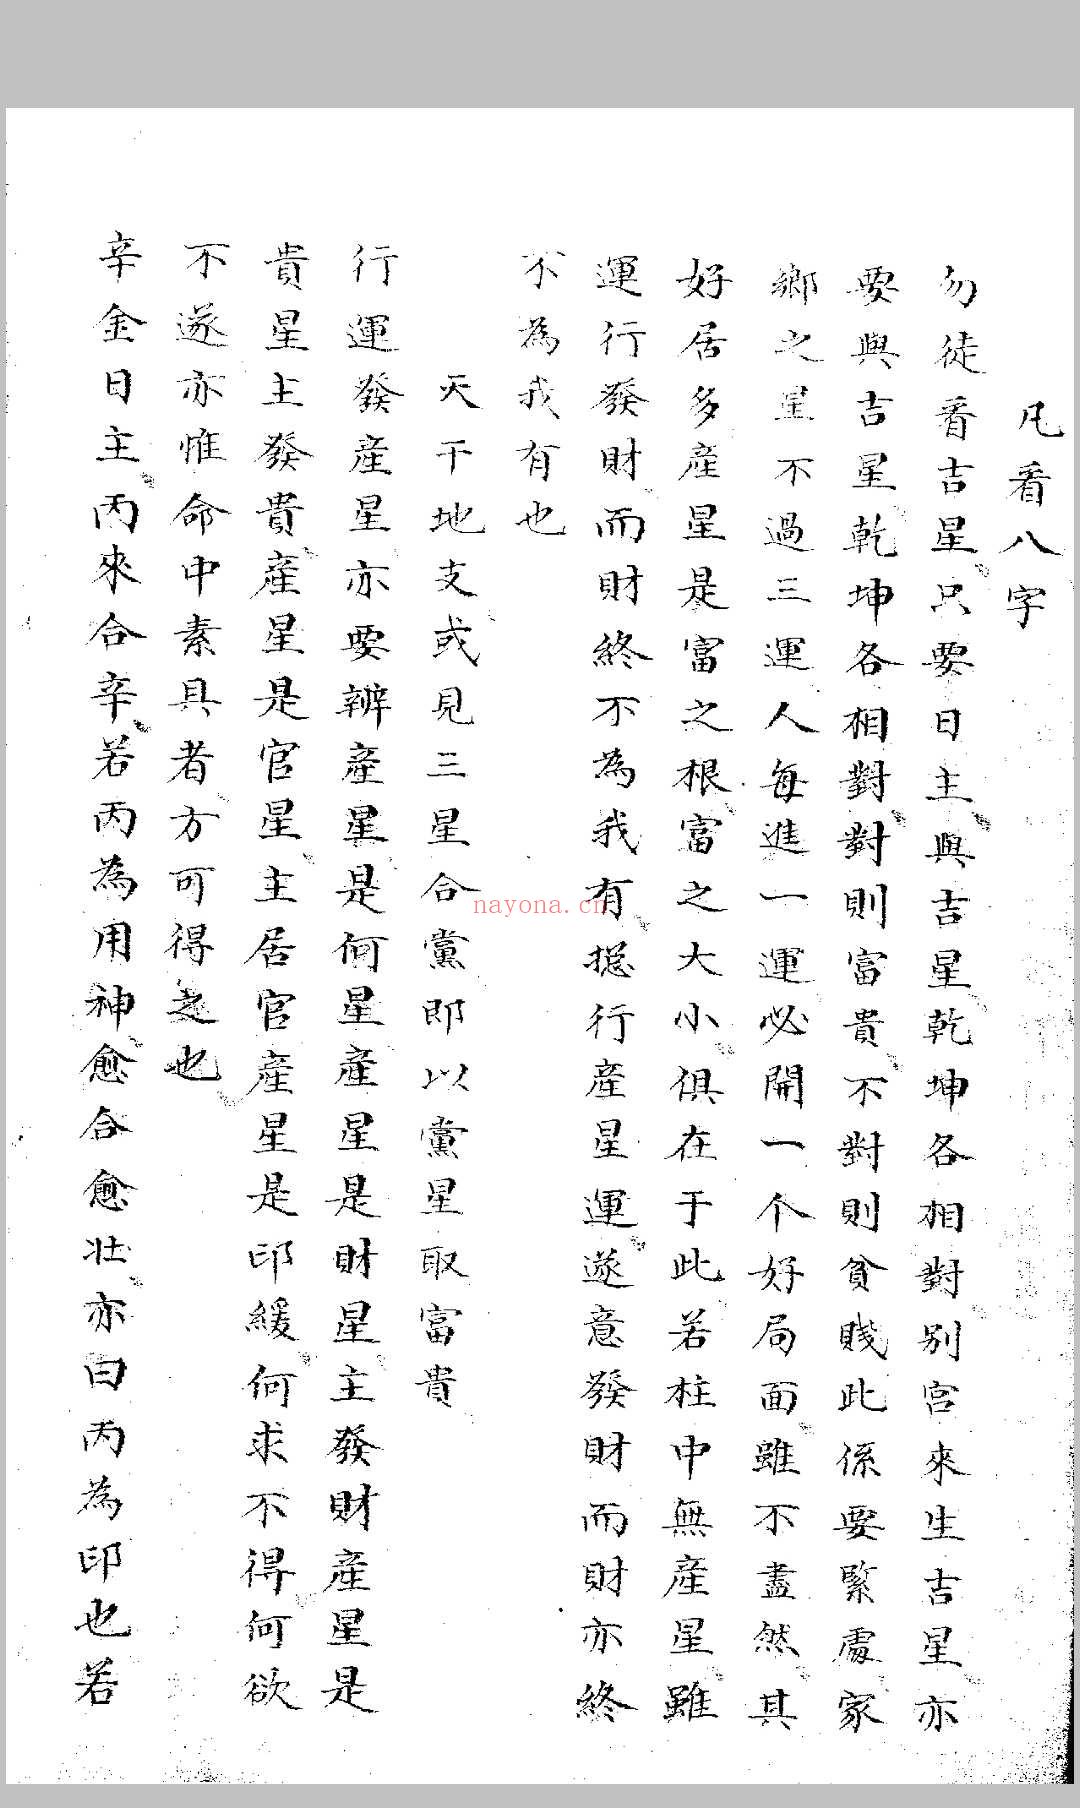 凡看八字
勿徒看吉星只要日主與吉星乾坤各相對別宮來生吉星亦
要與吉星乾坤各相對對則富貴不對則貧賤此係要緊處家
鄉之星不過三運人每進一運必開一个好局面雖不盡然其
好居多產星是富之根富之大小俱在于此若柱中無產星雖
運行發財而財終不為我有總行產星運遂意發財而財亦終
不為我有也
天干地支或見三星合黨即以黨星取富貴
行運發產星亦要辨產星是何星產星是財星主發財產星是
貴星主發貴產星是官星主居官產星是印緩何求不得何欲
不遂亦惟命中素具者方可得之也
辛金日主丙來合辛若丙為用神愈合愈壯亦曰丙為印也若
nayona.cn